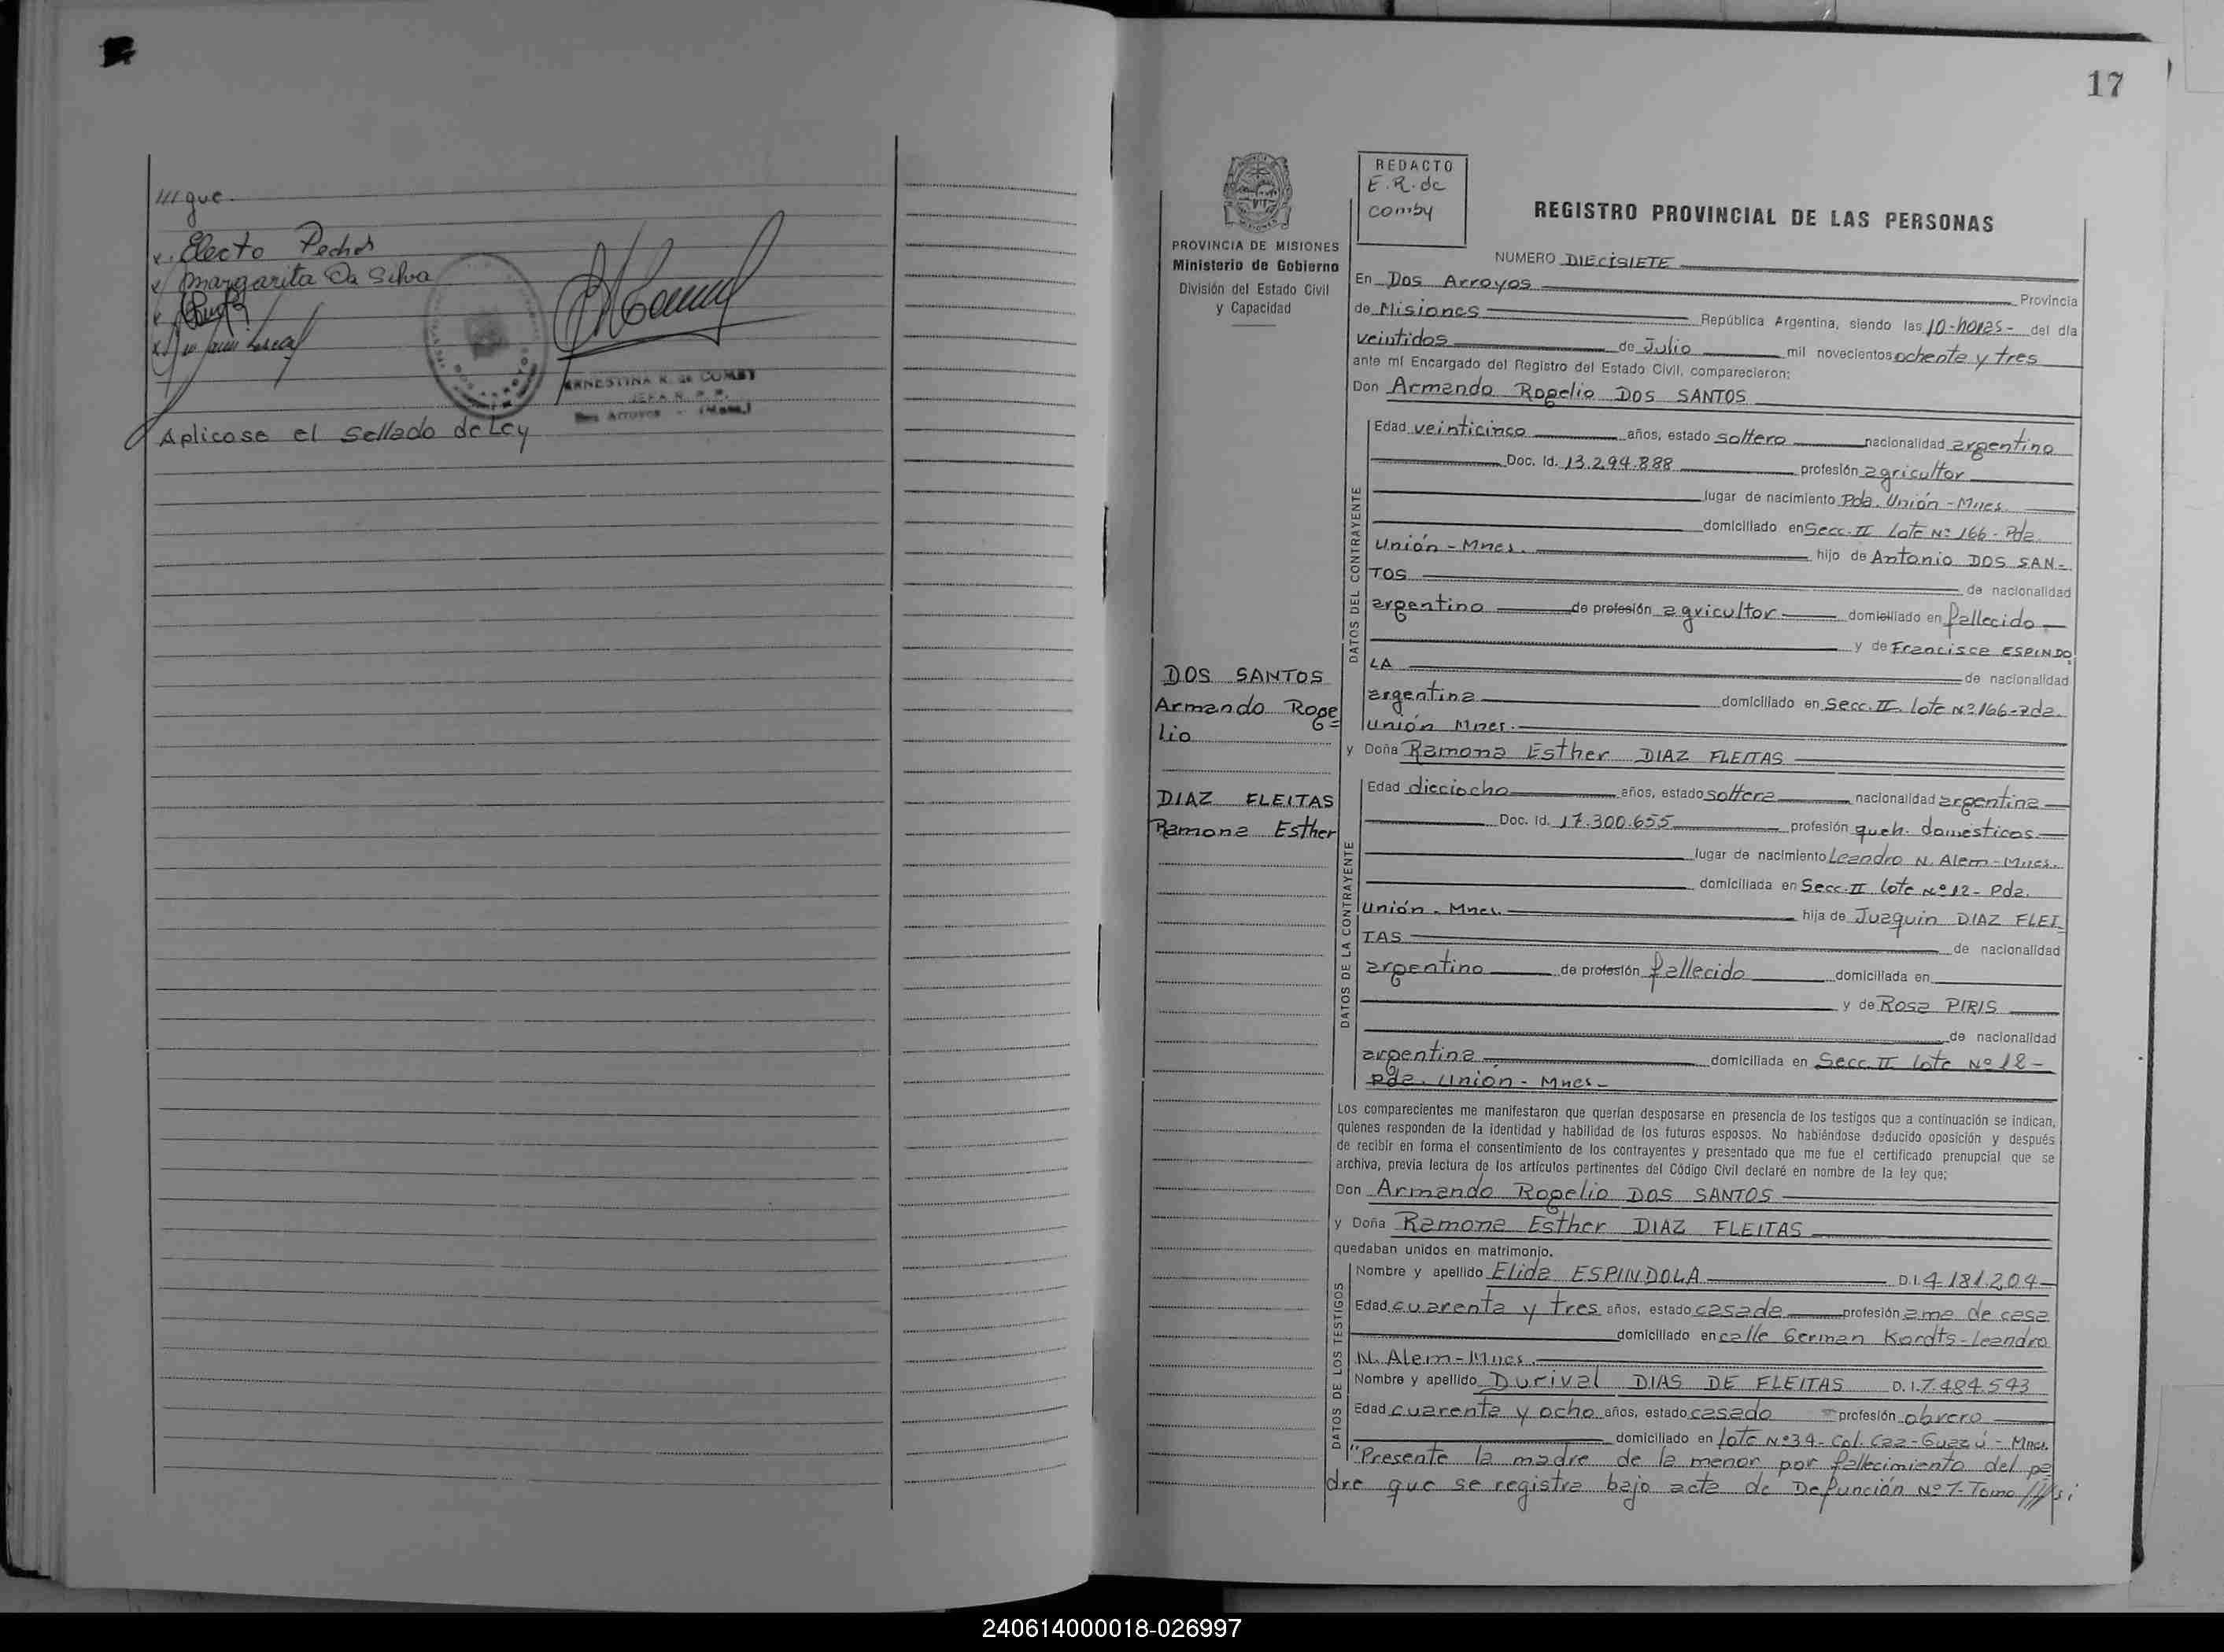 /// gue.
x. Electo Pedrós
x Margarita Da Silva
ERNESTINA R. de COMBY
JEFA R. P. P.
Dos Arroyos - (Mnes.)
Aplicose el Sellado de Ley
17
REDACTO
E.R. de
comby
REGISTRO PROVINCIAL DE LAS PERSONAS
PROVINCIA DE MISIONES
Ministerio de Gobierno
División del Estado Civil
y Capacidad
NUMERO DIECISIETE
En Dos Arroyos Provincia
de Misiones República Argentina, siendo las 10-horas- del día
veintidos de Julio mil novecientos ochenta y tres
ante mí Encargado del Registro del Estado Civil, comparecieron:
Don Armando Rogelio DOS SANTOS
DATOS DEL CONTRAYENTE
Edad veinticinco años, estado soltero nacionalidad argentino
Doc. Id. 13.294.888 profesión agricultor
lugar de nacimiento Pda. Unión - Mnes.
domiciliado en Secc. II Lote Nº 166 - Pda.
Unión - Mnes. hijo de Antonio DOS SAN-
TOS de nacionalidad
argentino de profesión agricultor domiciliado en fallecido
y de Francisca ESPINDO
LA de nacionalidad
argentina domiciliado en Secc. II Lote Nº 166 - Pda.
Unión Mnes.
DOS SANTOS
Armando Roge
lio
DIAZ FLEITAS
Ramona Esther
y Doña Ramona Esther DIAZ FLEITAS
DATOS DE LA CONTRAYENTE
Edad dieciocho años, estado soltera nacionalidad argentina
Doc. Id. 17.300.655 profesión queh. domésticos
lugar de nacimiento Leandro N. Alem - Mnes.
domiciliada en Secc. II Lote Nº 12 - Pda.
Unión - Mnes. hija de Juaquin DIAZ FLEI
TAS de nacionalidad
argentino de profesión fallecido domiciliada en
y de Rosa PIRIS
de nacionalidad
argentina domiciliada en Secc. II Lote Nº 12 -
pda. Unión - Mnes -
Los comparecientes me manifestaron que querían desposarse en presencia de los testigos que a continuación se indican,
quienes responden de la identidad y habilidad de los futuros esposos. No habiéndose deducido oposición y después
de recibir en forma el consentimiento de los contrayentes y presentado que me fue el certificado prenupcial que se
archiva, previa lectura de los artículos pertinentes del Código Civil declaré en nombre de la ley que:
Don Armando Rogelio DOS SANTOS
y Doña Ramona Esther DIAZ FLEITAS
quedaban unidos en matrimonio.
DATOS DE LOS TESTIGOS
Nombre y apellido Elida ESPINDOLA D.I. 4.181.204
Edad cuarenta y tres años, estado casada profesión ama de casa
domiciliado en calle German Kordts - Leandro
N. Alem - Mnes.
Nombre y apellido Durival DIAS DE FLEITAS D.I. 7.484.543
Edad cuarenta y ocho años, estado casado profesión obrero
domiciliado en lote Nº 34 - Col. Caa-Guazú - Mnes.
"Presente la madre de la menor por fallecimiento del pa
dre que se registra bajo acta de Defunción Nº 7- Tomo /// si
240614000018-026997